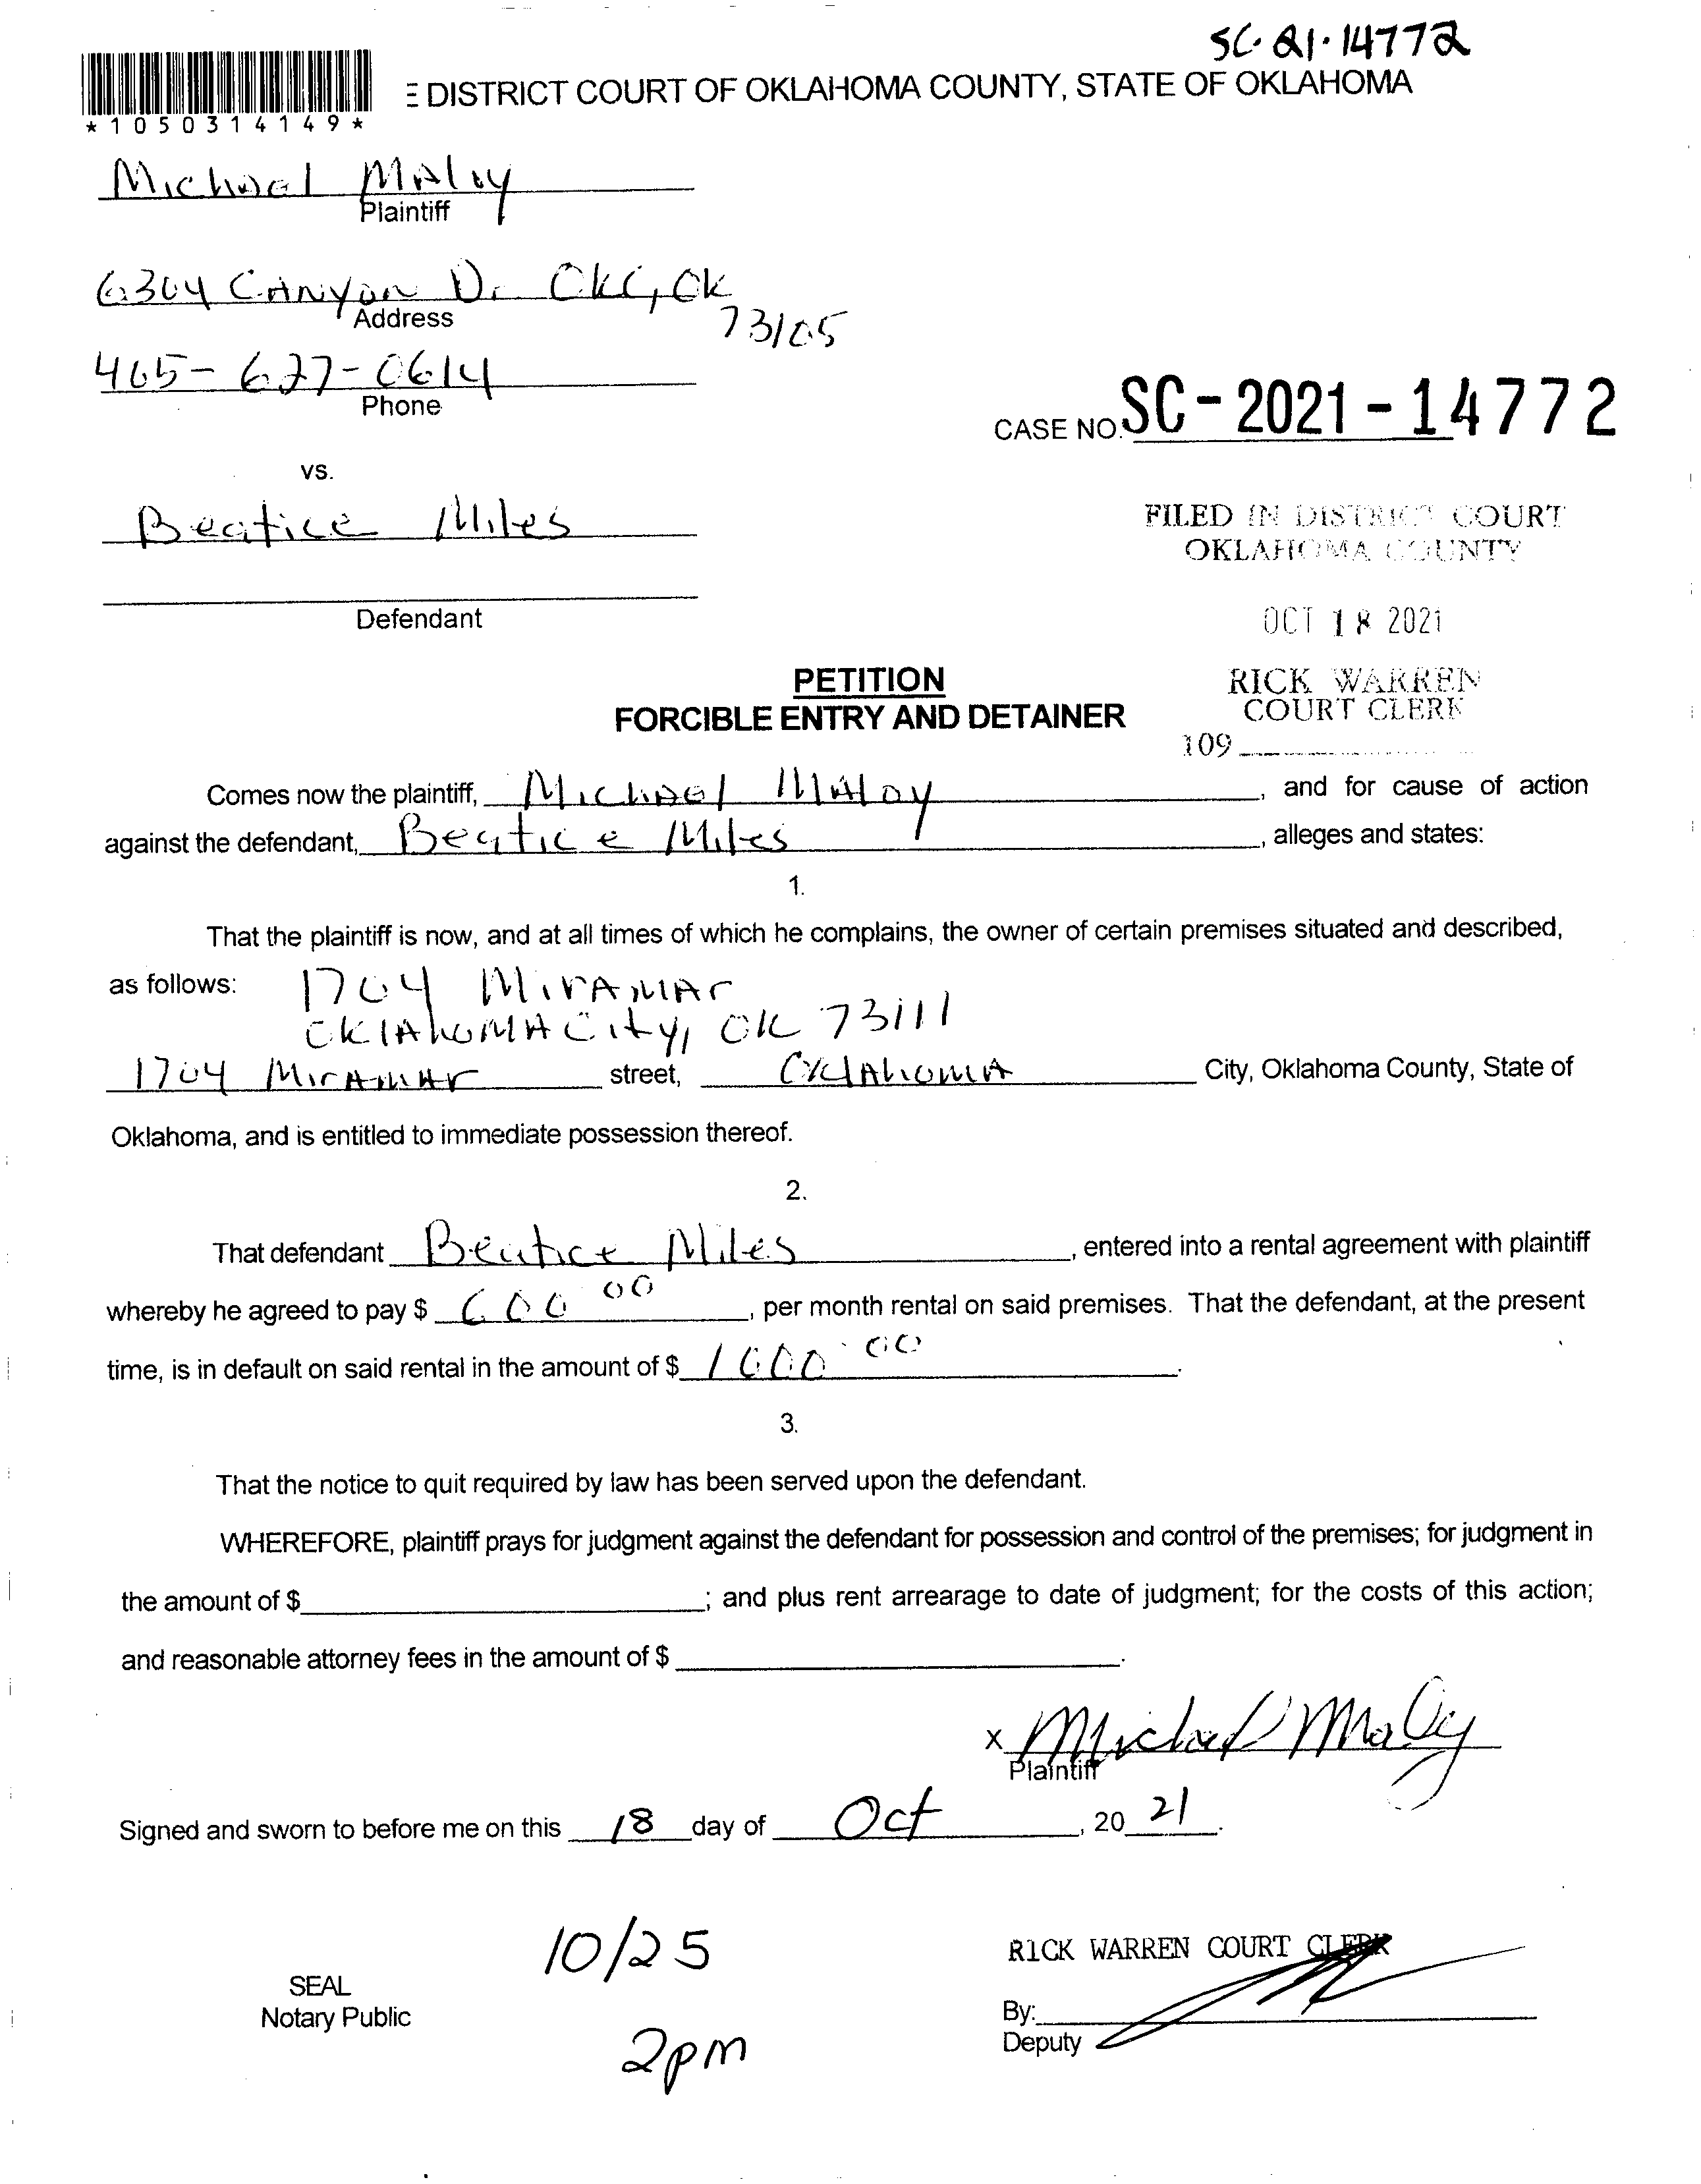 SC-21-14772
E DISTRICT COURT OF OKLAHOMA COUNTY, STATE OF OKLAHOMA
*1050314149*
Michael Maloy
Plaintiff
6304 Canyon Dr OKC, OK
73105
Address
405-627-0614
Phone
CASE NO. SC-2021-14772
vs.
Beatice Miles
Defendant
FILED IN DISTRICT COURT
OKLAHOMA COUNTY
OCT 18 2021
RICK WARREN
COURT CLERK
109
PETITION
FORCIBLE ENTRY AND DETAINER
Comes now the plaintiff, Michael Maloy, and for cause of action
against the defendant, Beatice Miles, alleges and states:
1.
That the plaintiff is now, and at all times of which he complains, the owner of certain premises situated and described,
as follows: 1704 Miramar
Oklahoma City, OK 73111
1704 Miramar street, Oklahoma City, Oklahoma County, State of
Oklahoma, and is entitled to immediate possession thereof.
2.
That defendant Beatice Miles, entered into a rental agreement with plaintiff
whereby he agreed to pay $ 600 00, per month rental on said premises. That the defendant, at the present
time, is in default on said rental in the amount of $ 1000.00.
3.
That the notice to quit required by law has been served upon the defendant.
WHEREFORE, plaintiff prays for judgment against the defendant for possession and control of the premises; for judgment in
the amount of $; and plus rent arrearage to date of judgment; for the costs of this action;
and reasonable attorney fees in the amount of $.
x Michael Maloy
Plaintiff
Signed and sworn to before me on this 18 day of Oct, 20 21.
10/25
2pm
SEAL
Notary Public
RICK WARREN COURT CLERK
By:
Deputy